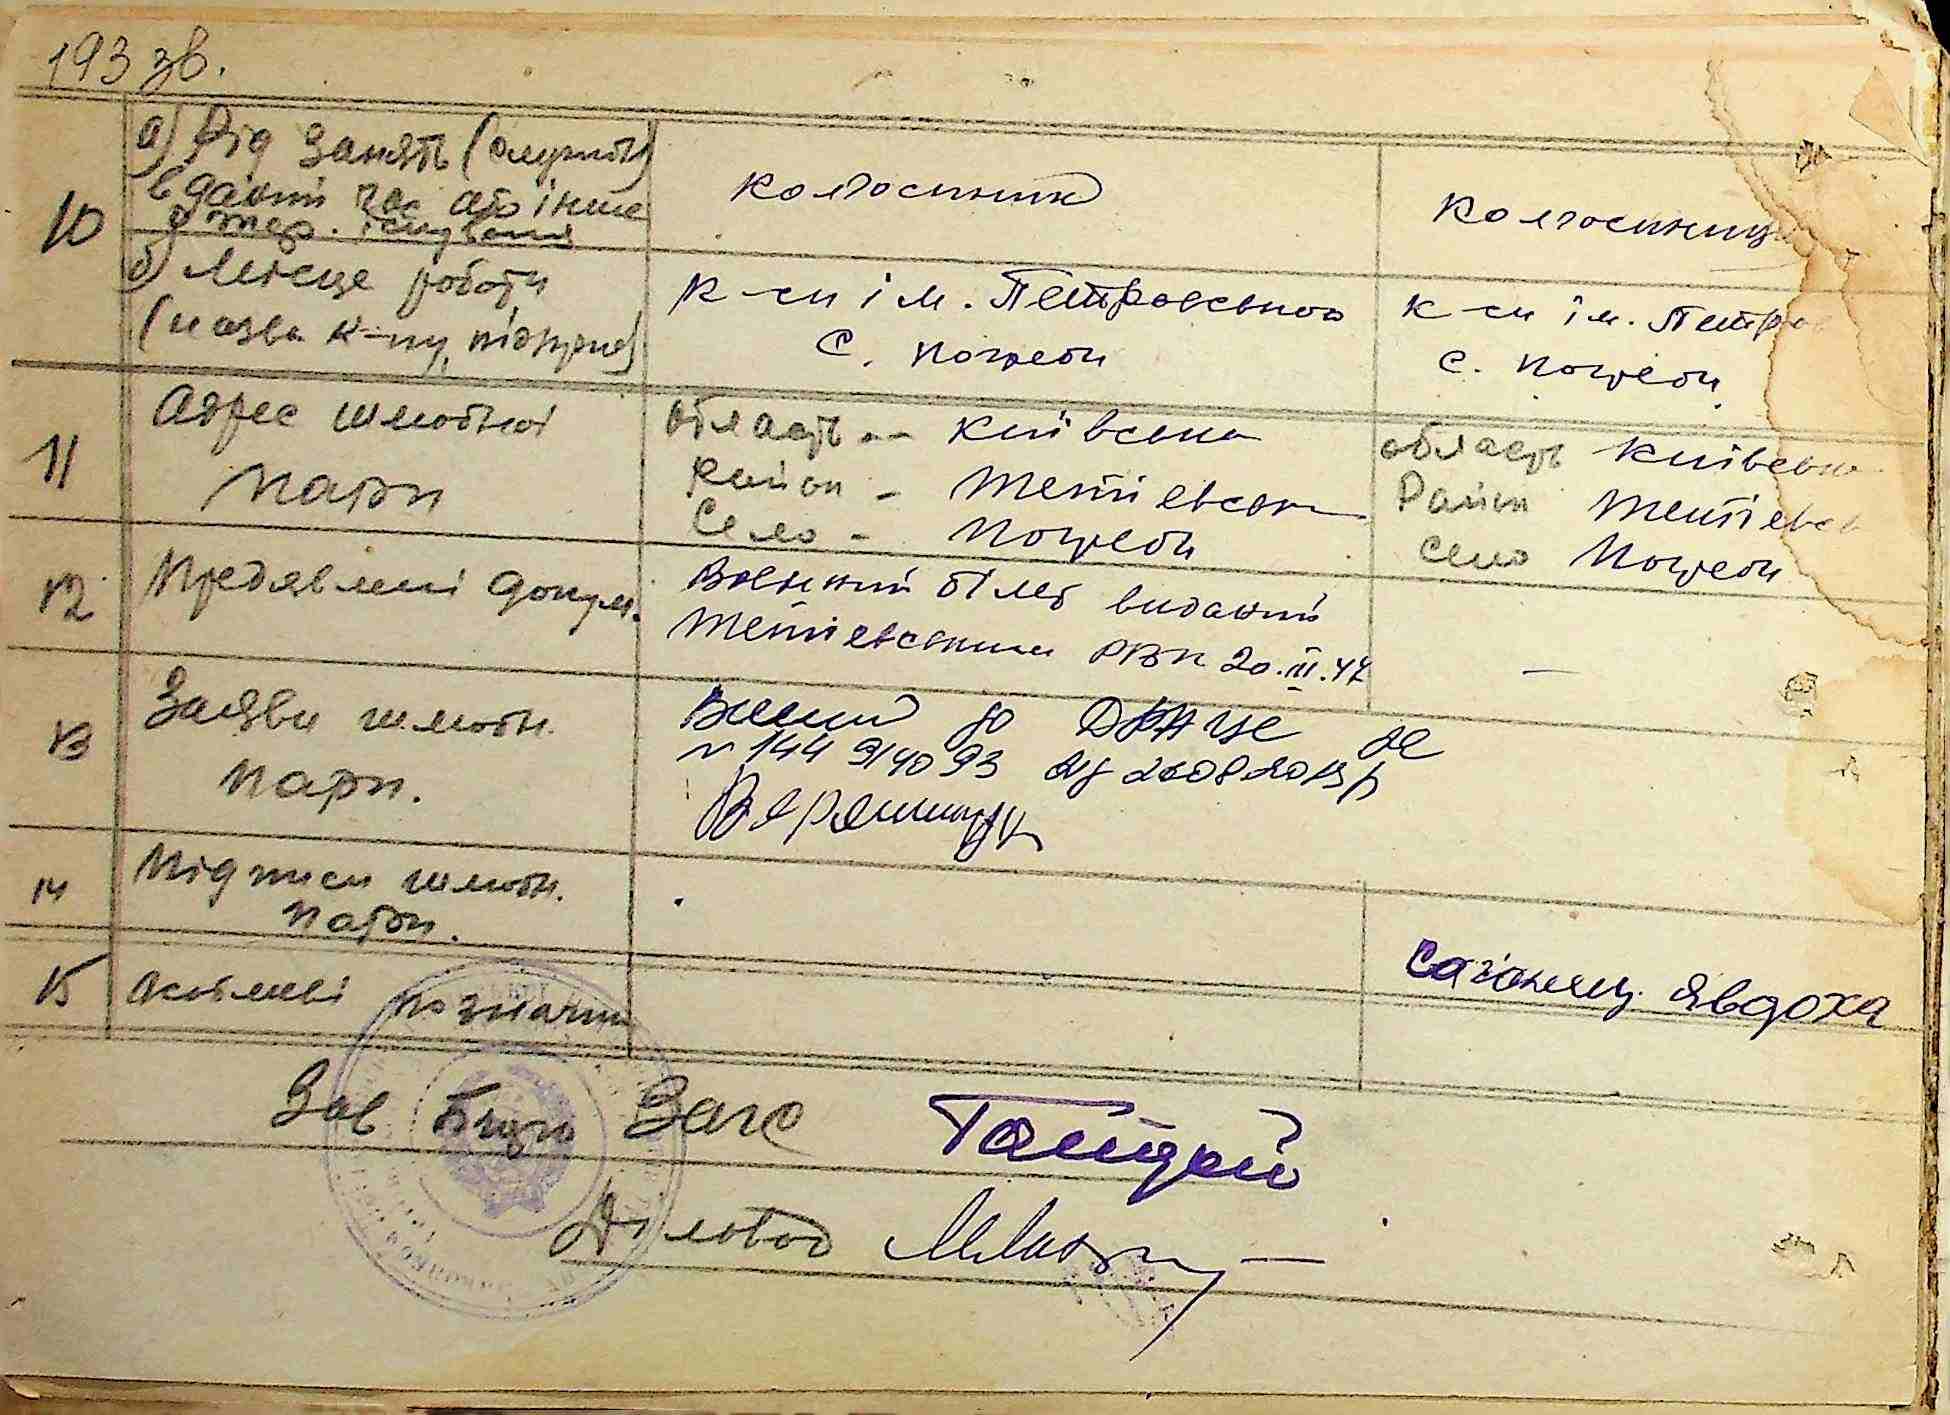 193 зв.
10
а) Рід занять (служити)
в даний час або інше
джер. існування
колгоспник
колгоспниця
б) Місце роботи
(назва к-пу, підприє)
к-сп ім. Петровського
с. Погреби
к-сп ім. Петров
с. Погреби
11
Адрес шлюбної
пари
область -- Київська
Район - Тетіевськ
Село - Погреби
область Київська
Район Тетіевс
село Погреби
12
Предявлені докум.
Военний білет виданий
Тетіевським РВК 20.III.47
—
13
Заяви шлюбн.
пари.
до ДРАЦС
N 144
14
Підписи шлюбн.
пари.
Саганяц. Явдоха
15
Особливі позначки
Зав Бюро Загс
Діловод